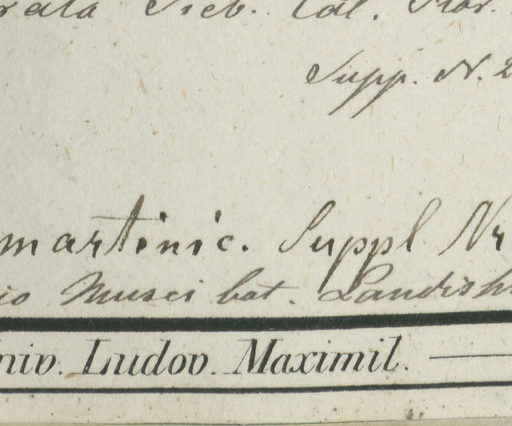 rata Sieb. Cat. Flor.
Supp. N. 2
martinic. Suppl Nr
io Musei bot. Landish
niv. Ludov. Maximil.